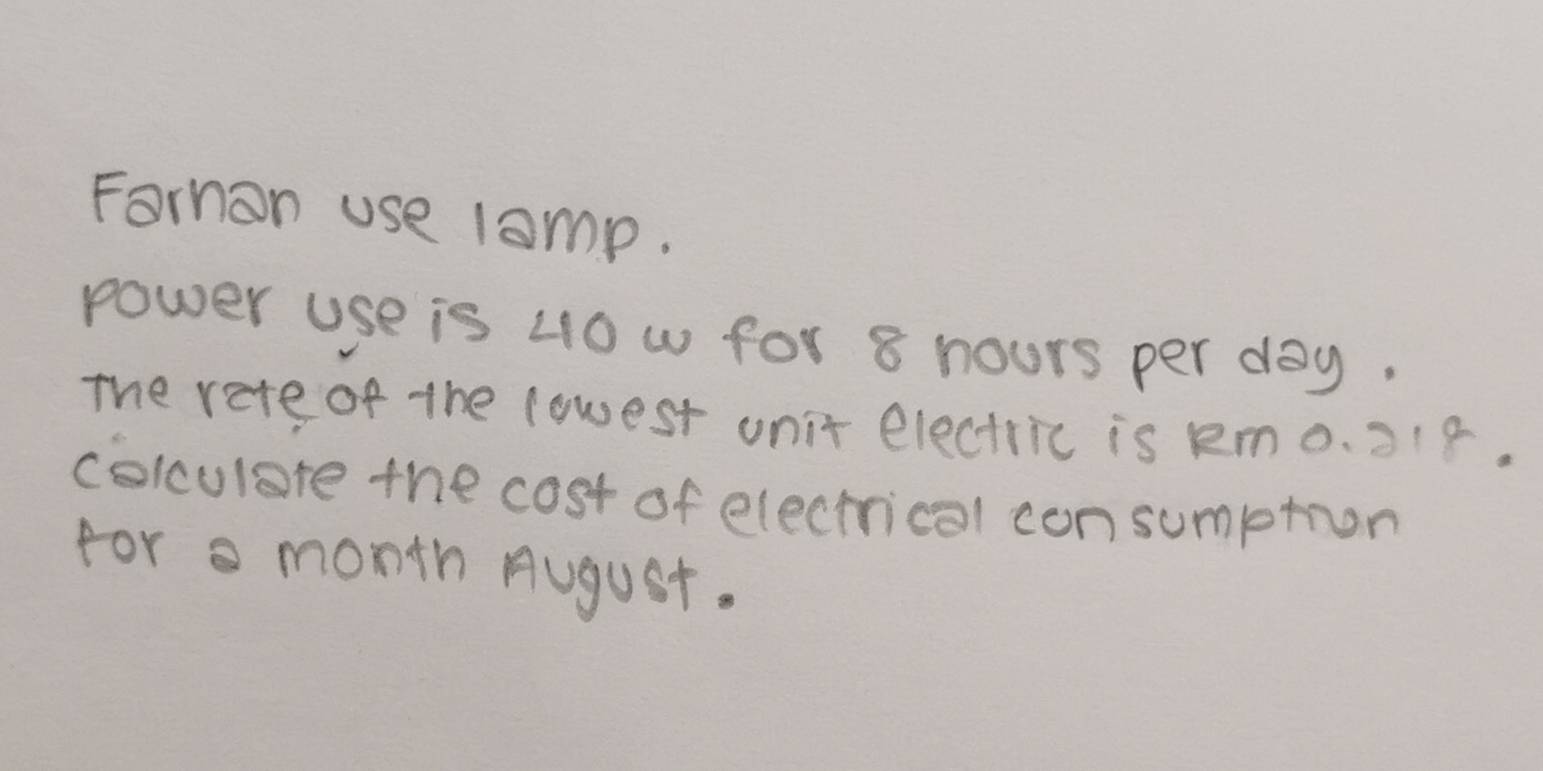 Farhan use lamp.
power use is 40 w for 8 hours per day.
The rate of the lowest unit electric is Rm 0.218.
calculate the cost of electrical consumption
for a month August.